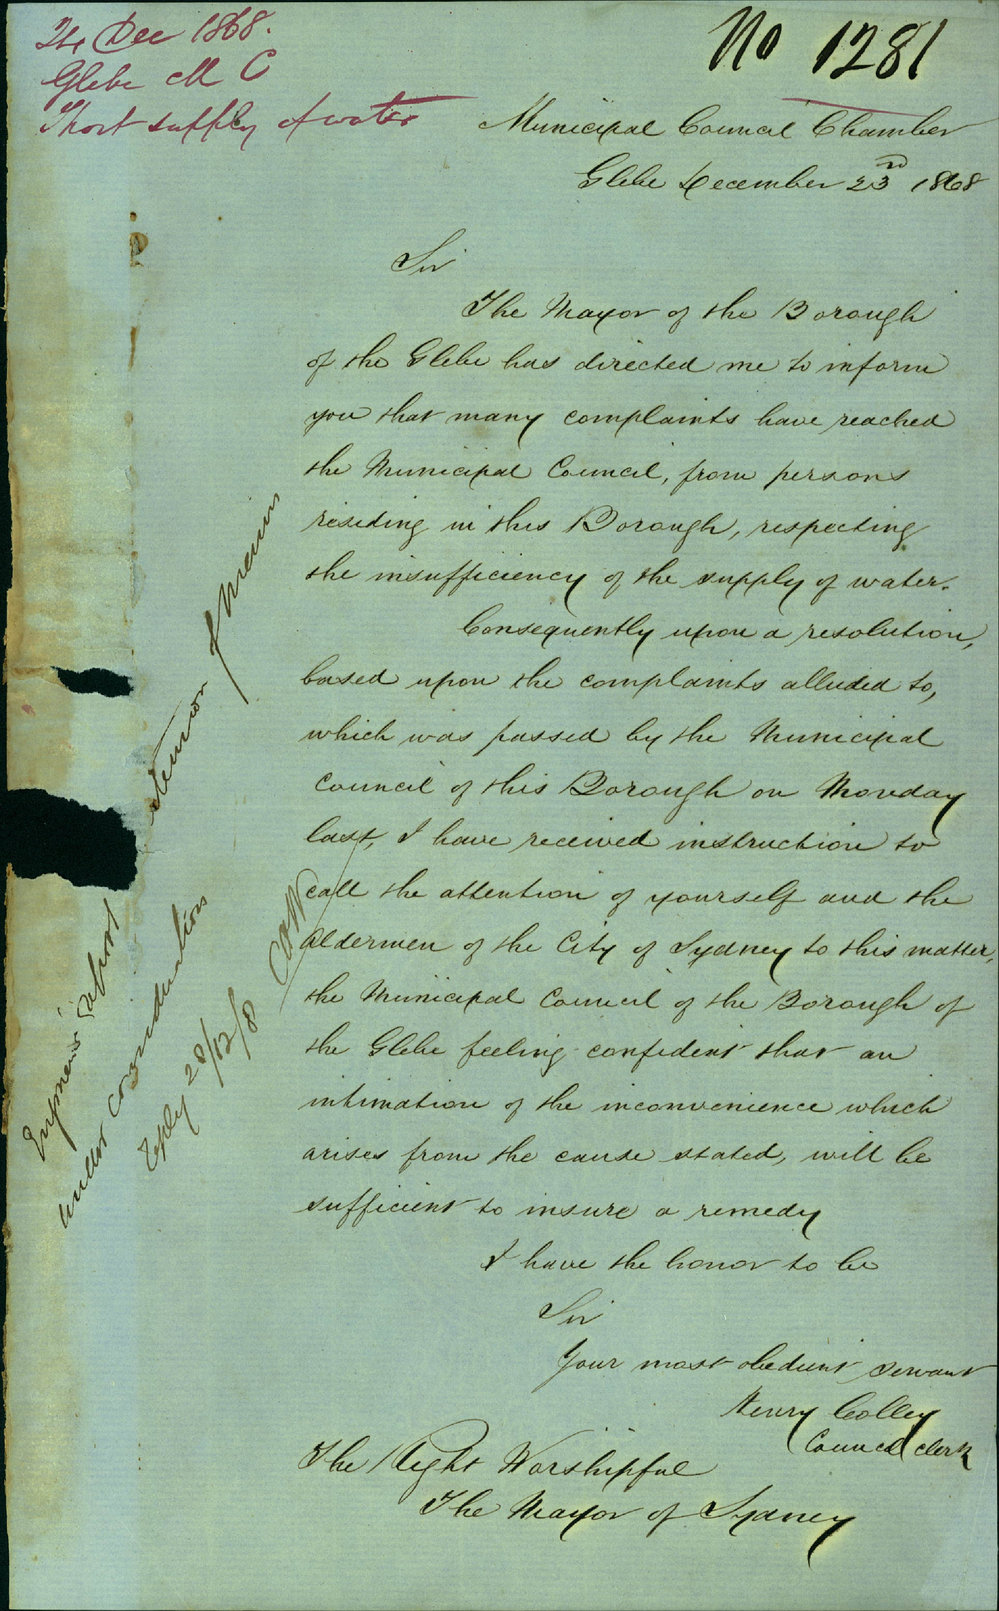 24 Dec 1868.
Glebe M C
Short supply of water
No 1281
Municipal Council Chamber
Glebe December 23rd 1868
Sir
The Mayor of the Borough
of the Glebe has directed me to inform
you that many complaints have reached
the Municipal Council, from persons
residing in this Borough, respecting
the insufficiency of the supply of water.
Consequently upon a resolution,
based upon the complaints alluded to,
which was passed by the Municipal
Council of this Borough on Monday
last, I have received instruction to
call the attention of yourself and the
Aldermen of the City of Sydney to this matter,
the Municipal Council of the Borough of
the Glebe feeling confident that an
intimation of the inconvenience which
arises from the cause stated, will be
sufficient to insure a remedy
I have the honor to be
Sir
Your most obedient servant
Henry Colley
Council Clerk
The Right Worshipful
The Mayor of Sydney
Engineers report
of Mains
under consideration
Reply 28/12/8